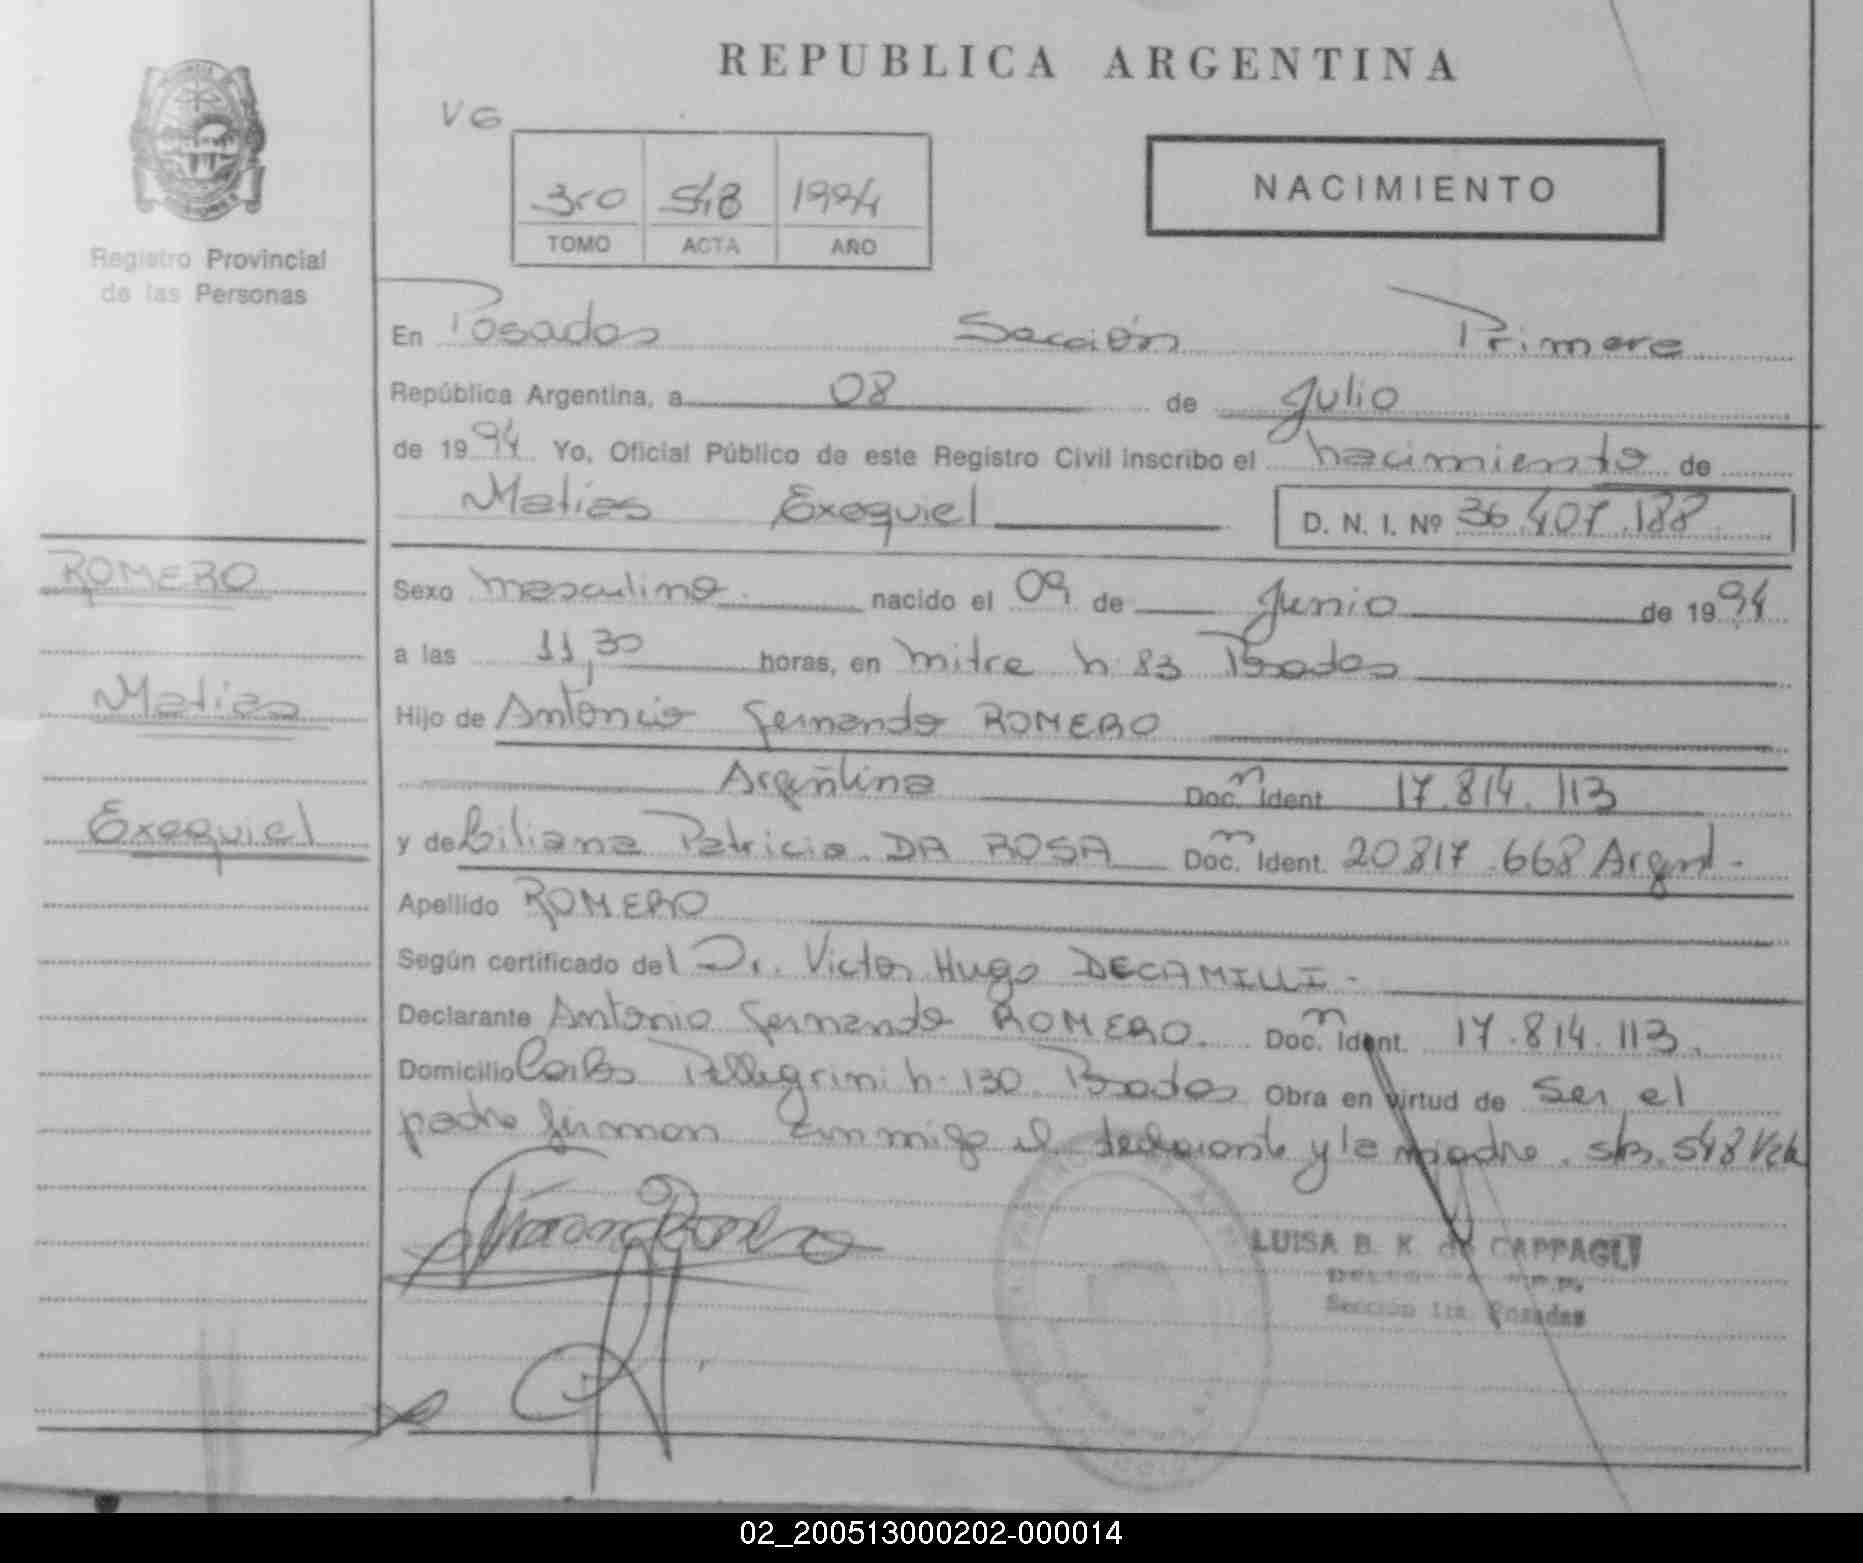 REPUBLICA ARGENTINA
V6
3ro 548 1994
TOMO ACTA AÑO
NACIMIENTO
Registro Provincial
de las Personas
En Posadas Sección Primera
República Argentina, a 08 de Julio
de 1994 Yo, Oficial Público de este Registro Civil inscribo el nacimiento de
Matias Exequiel D. N. I. Nº 36.407.188
ROMERO
Matias
Exequiel
Sexo masculino nacido el 09 de Junio de 1994
a las 11,30 horas, en mitre n: 83 Posadas
Hijo de Antonio Fernando ROMERO
Argentina Doc. Ident. 17.814.113
y de Liliana Patricia DA ROSA Doc. Ident. 20817.668 Argent.
Apellido ROMERO
Según certificado del Dr. Victor Hugo DECAMILLI -
Declarante Antonio Fernando ROMERO. Doc. Ident. 17.814.113.
Domicilio Carlos Pellegrini n: 130 Posadas Obra en virtud de ser el
padre firman conmigo el declarante y la madre. 548
LUISA B. K. de CAPPAGLI
Sección 1ra. Posadas
02_200513000202-000014